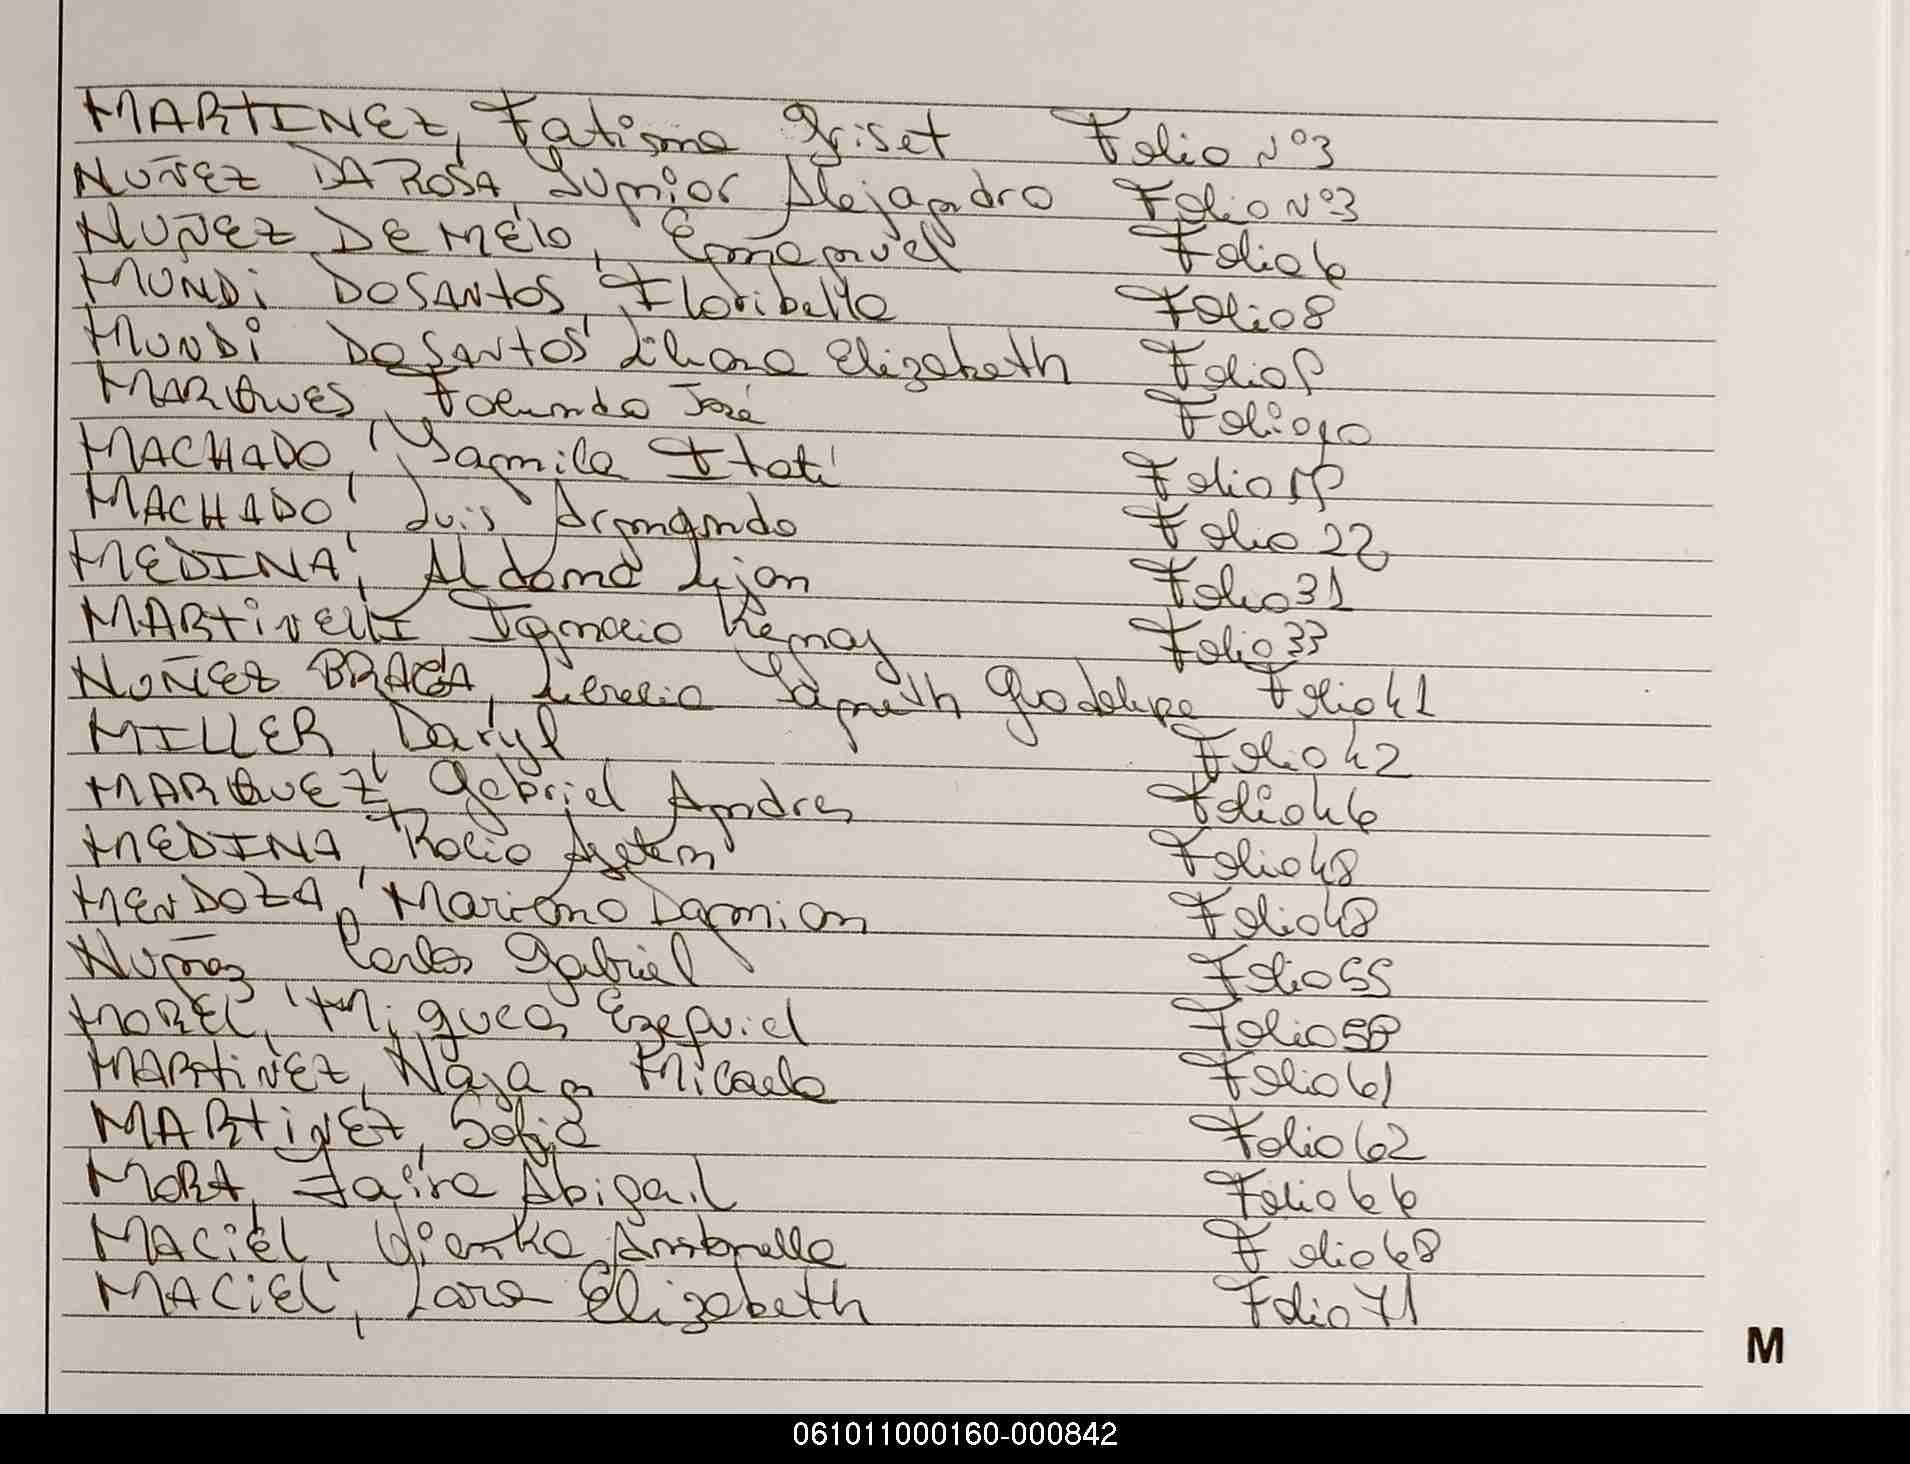 MARTINEZ, Fatima Griset Folio Nº3
NUÑEZ DA ROSA, Junior Alejandro Folio Nº3
NUÑEZ DE MELO, Emanuel Folio 6
MUNDI DOSANTOS, Floribella Folio 8
MUNDI DOSANTOS, Liliana Elizabeth Folio
MARQUES, Facundo José Folio 10
MACHADO, Yamila Itatí Folio
MACHADO, Luis Armando Folio 22
MEDINA, Aldana Folio 31
MARTINELLI Ignacio Folio 33
NUÑEZ BRAGA, Guadalupe Folio 41
MILLER, Daryl Folio 42
MARQUEZ, Gabriel Andres Folio 46
MEDINA, Rocio Folio 48
MENDOZA, Mariano Damian Folio 48
Nuñez Carlos Gabriel Folio 55
MOREL, Ezequiel Folio 58
MARTINEZ, Micaela Folio 61
MARTINEZ, Sofia Folio 62
MORA, Jaira Abigail Folio 66
MACIEL, Antonella Folio 68
MACIEL, Lara Elizabeth Folio 71
M
061011000160-000842